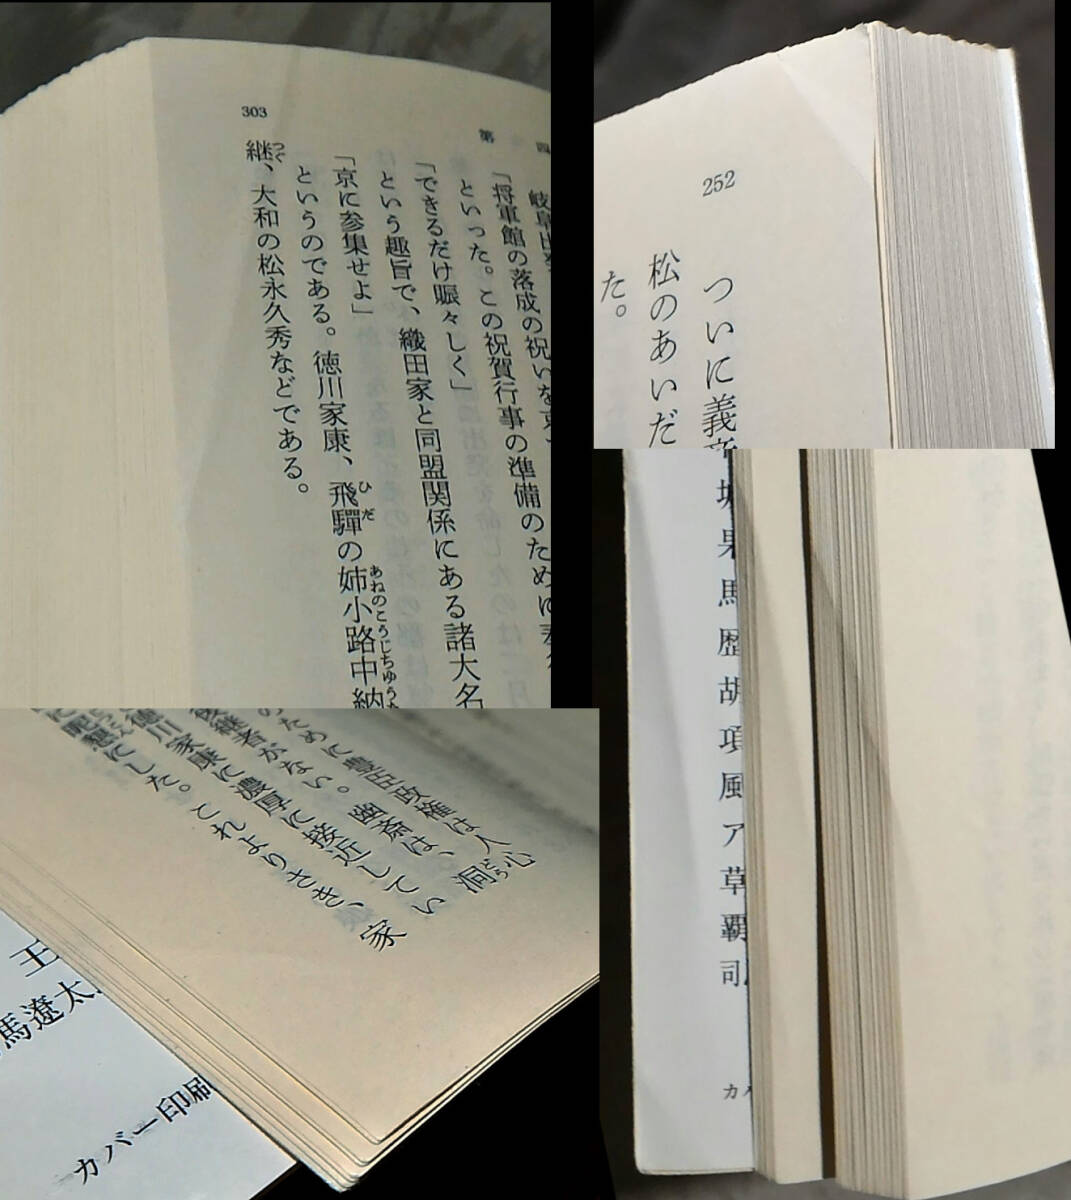 303
第四
岐阜出
「将軍館の落成の祝いを
といった。この祝賀行事の準備のために
「できるだけ賑々しく」
という趣旨で、織田家と同盟関係にある諸大名
「京に参集せよ」
というのである。徳川家康、飛驒の姉小路中納
継、大和の松永久秀などである。
252
ついに義
松のあいだ
た。
のために豊臣政権は人心
後継者がない。幽斎は、洞
徳川家康に濃厚に接近してい
に昵懇にした。これよりさき、家
王
馬遼太
カバー印刷
城
果
馬
歴
胡
項
風
ア
草
覇
司
カバ